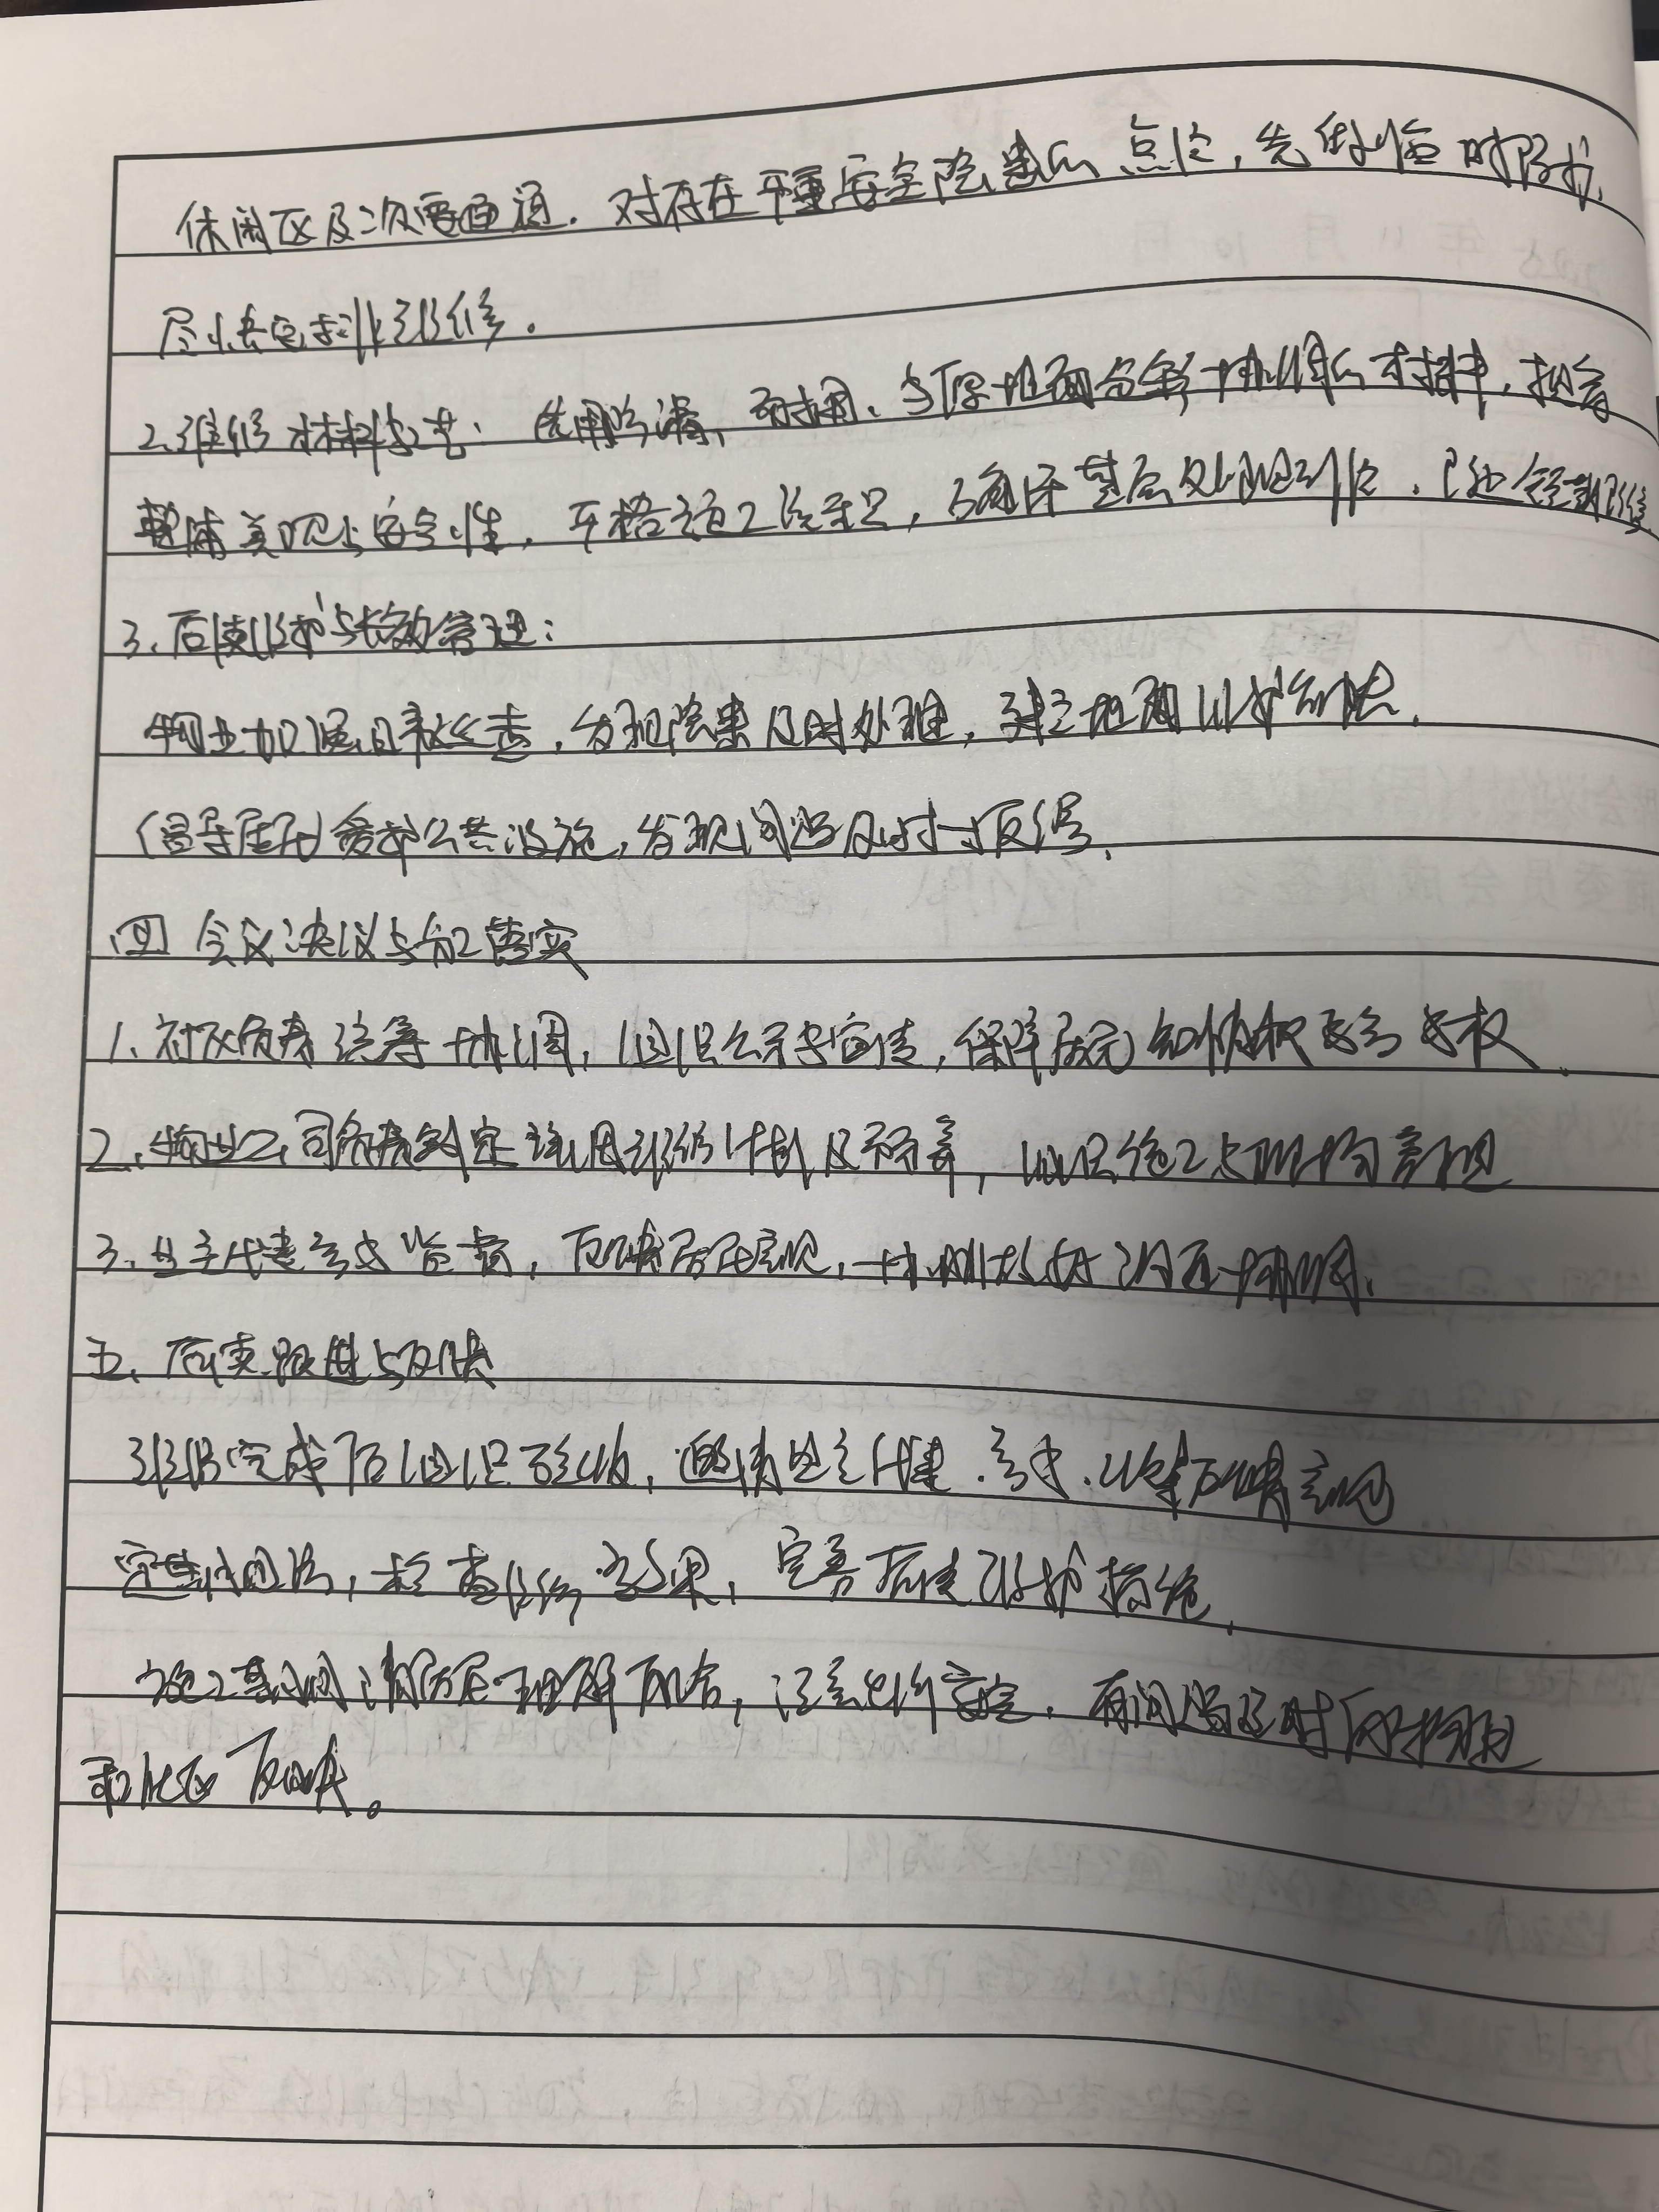 休闲区及次要通道.对存在严重安全隐患的点位,先做临时防护,
尽快安排维修.
2.维修材料与工艺:选用防滑、耐磨、与原地面色彩协调的材料,提高
整体美观与安全性,严格施工标准,确保基层处理到位,
3.后续维护与长效管理:
物业加强日常巡查,发现隐患及时处理,建立地面维护机制.
倡导居民爱护公共设施,发现问题及时反馈.
四 会议决议与分工落实
1.社区负责统筹协调,组织公示与宣传,保障居民知情权与参与权.
2.物业公司负责制定详细维修计划及预算,组织施工与现场管理
3.业主代表参与监督,反映居民意见,协助做好沟通协调.
五、后续跟进与反馈
维修完成后组织验收,邀请业主代表参与.收集反馈意见
定期回访,检查维修效果,完善后续维护措施.
施工期间请居民理解配合,注意出行安全.有问题及时向物业
和社区反映。